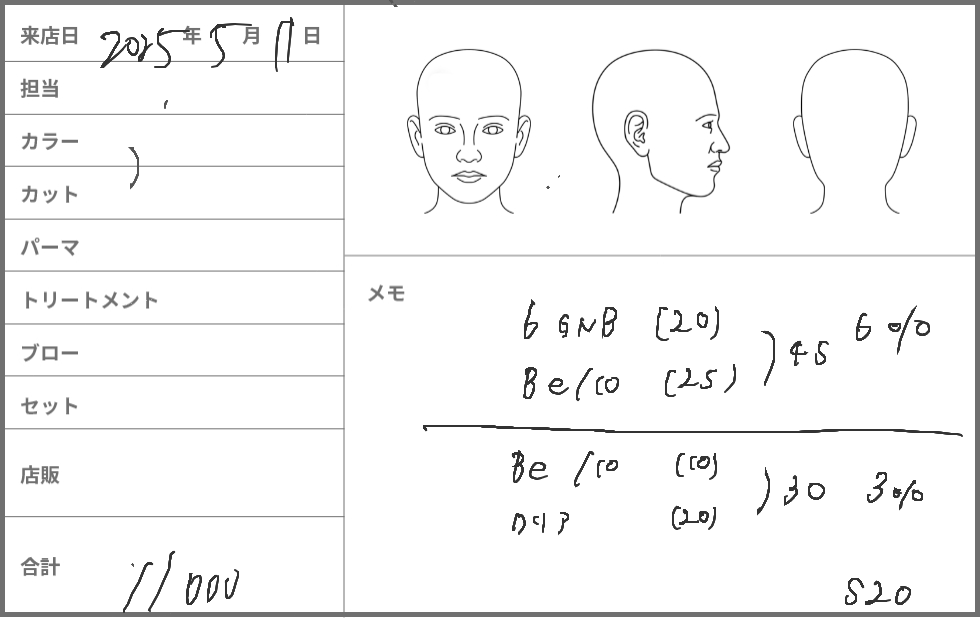 来店日 2025年 5月 11日
担当
カラー )
カット
パーマ
トリートメント
ブロー
セット
店販
合計 11000
メモ
6 GNB (20)
Be/10 (25) ) 45 6%
Be /10 (10)
(20) ) 30 3%
520